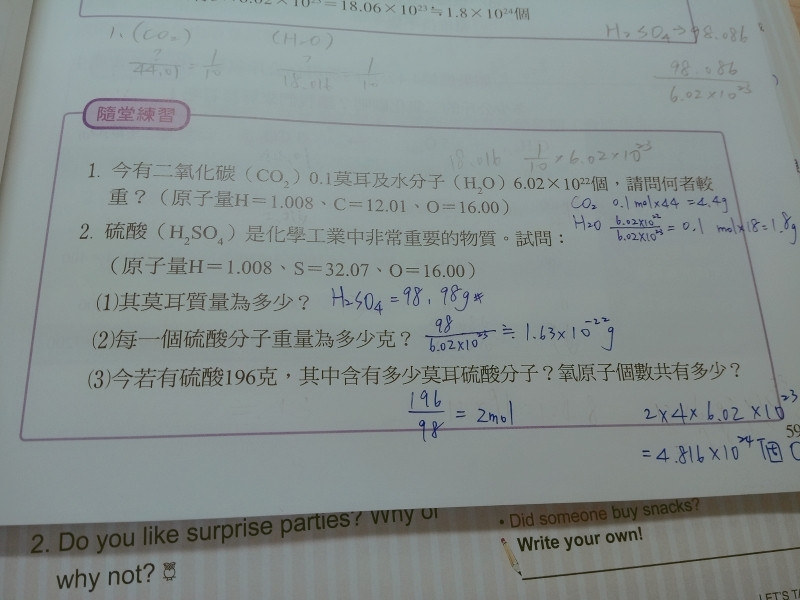 6.02×10²³=18.06×10²³≒1.8×10²⁴個
H₂SO₄→98.086
1. (CO₂)
(H₂O)
?/44.01=1/10
?/18.016 1/10
98.086/6.02×10²³
隨堂練習
18.016 1/10×6.02×10²³
1. 今有二氧化碳（CO₂）0.1莫耳及水分子（H₂O）6.02×10²²個，請問何者較
重？（原子量H＝1.008、C＝12.01、O＝16.00）
CO₂ 0.1 mol×44=4.4g
H₂O 6.02×10²²/6.02×10²³=0.1 mol×18=1.8g
2. 硫酸（H₂SO₄）是化學工業中非常重要的物質。試問：
（原子量H＝1.008、S＝32.07、O＝16.00）
⑴其莫耳質量為多少？ H₂SO₄=98, 98g
⑵每一個硫酸分子重量為多少克？ 98/6.02×10²³≒1.63×10⁻²²g
⑶今若有硫酸196克，其中含有多少莫耳硫酸分子？氧原子個數共有多少？
196/98=2mol
2×4×6.02×10²³
=4.816×10²⁴個
59
2. Do you like surprise parties? Why or
why not?
• Did someone buy snacks?
Write your own!
LET'S TA